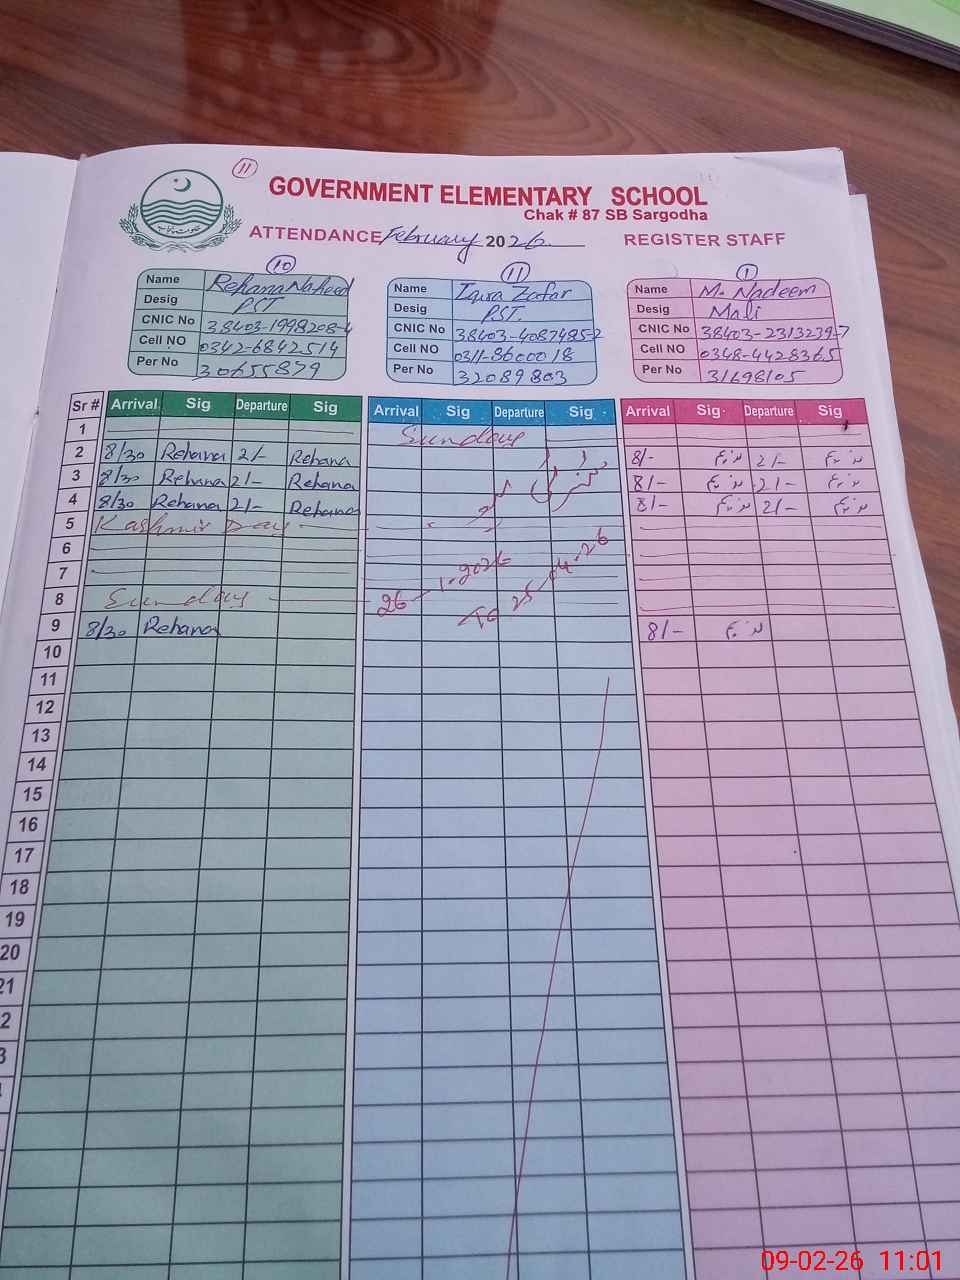 11
GOVERNMENT ELEMENTARY SCHOOL
Chak # 87 SB Sargodha
ATTENDANCE February 2026 REGISTER STAFF
10 11 1
Name Rehana Naheed Name Iqra Zafar Name M. Nadeem
Desig PST Desig PST. Desig Mali
CNIC No 38403-1998208-4 CNIC No 38403-4087485-2 CNIC No 38403-2313239-7
Cell NO 0342-6842514 Cell NO 0311-8600018 Cell NO 0348-4428365
Per No 30655879 Per No 32089803 Per No 31698105
Sr # Arrival Sig Departure Sig Arrival Sig Departure Sig Arrival Sig Departure Sig
1 Sunday
2 8/30 Rehana 2/- Rehana 8/- 2/-
3 8/30 Rehana 2/- Rehana 8/- 2/-
4 8/30 Rehana 2/- Rehana 8/- 2/-
5 Kashmir Day
6
7 26-1-2026
8 Sunday To 25-04-26
9 8/30 Rehana 8/-
10
11
12
13
14
15
16
17
18
19
20
21
2
3
09-02-26 11:01